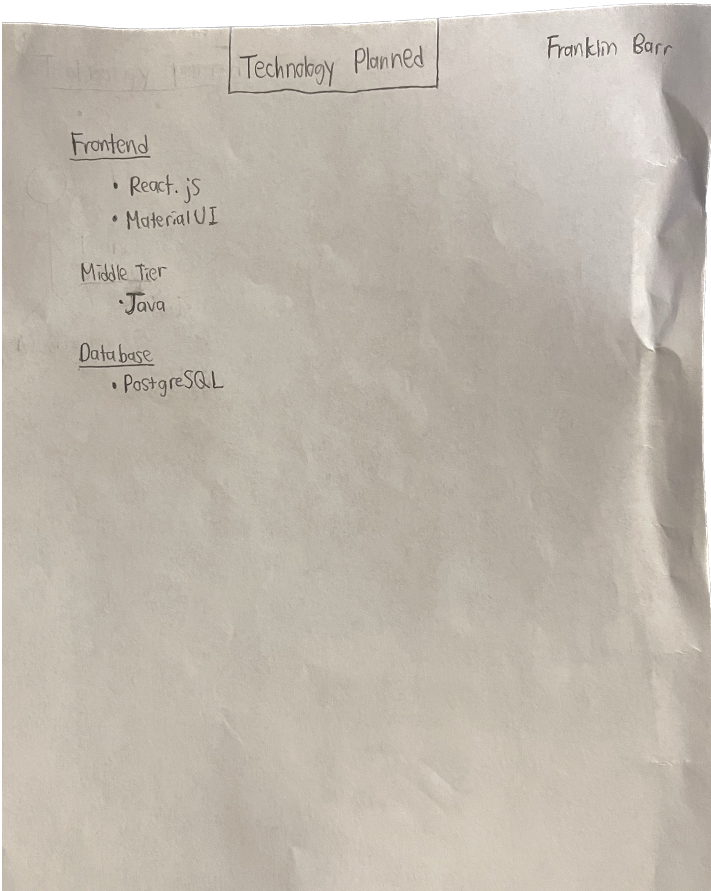 Technology Planned
Franklin Barr
Frontend
• React.js
• Material UI
Middle Tier
• Java
Database
• PostgreSQL